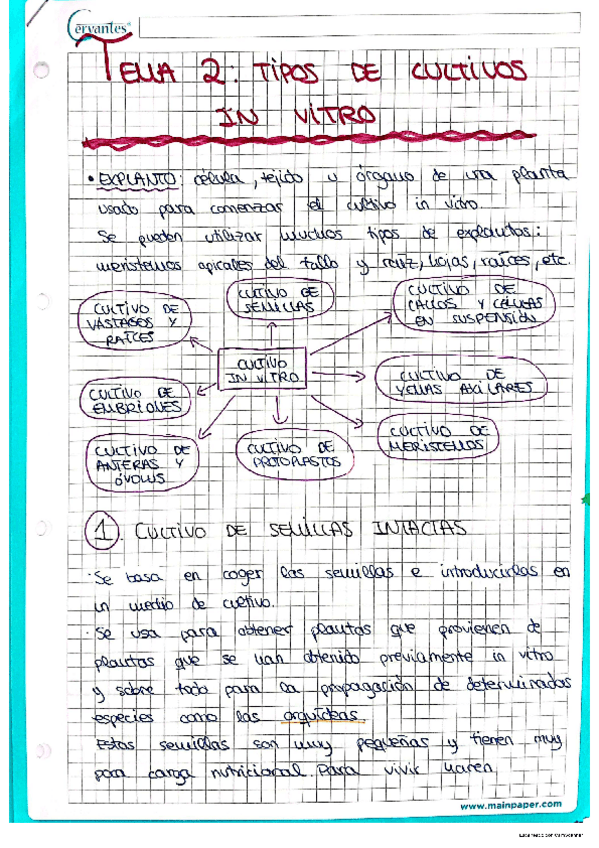 Cervantes
TEMA 2: TIPOS DE CULTIVOS
IN VITRO
• EXPLANTO: célula, tejido u órgano de una planta
usado para comenzar el cultivo in vitro.
Se pueden utilizar muchos tipos de explantos:
meristemos apicales del tallo y raíz, hojas, raíces, etc.
CULTIVO DE
VÁSTAGOS Y
RAÍCES
CULTIVO DE
SEMILLAS
CULTIVO DE
CALLOS Y CÉLULAS
EN SUSPENSIÓN
CULTIVO
IN VITRO
CULTIVO DE
YEMAS AXILARES
CULTIVO DE
EMBRIONES
CULTIVO DE
MERISTEMOS
CULTIVO DE
ANTERAS Y
ÓVULOS
CULTIVO DE
PROTOPLASTOS
1. CULTIVO DE SEMILLAS INTACTAS
· Se basa en coger las semillas e introducirlas en
un medio de cultivo.
· Se usa para obtener plantas que provienen de
plantas que se han obtenido previamente in vitro
y sobre todo para la propagación de determinados
especies como las orquídeas.
Estas semillas son muy pequeñas y tienen muy
poca carga nutricional. Para vivir hacen
www.mainpaper.com